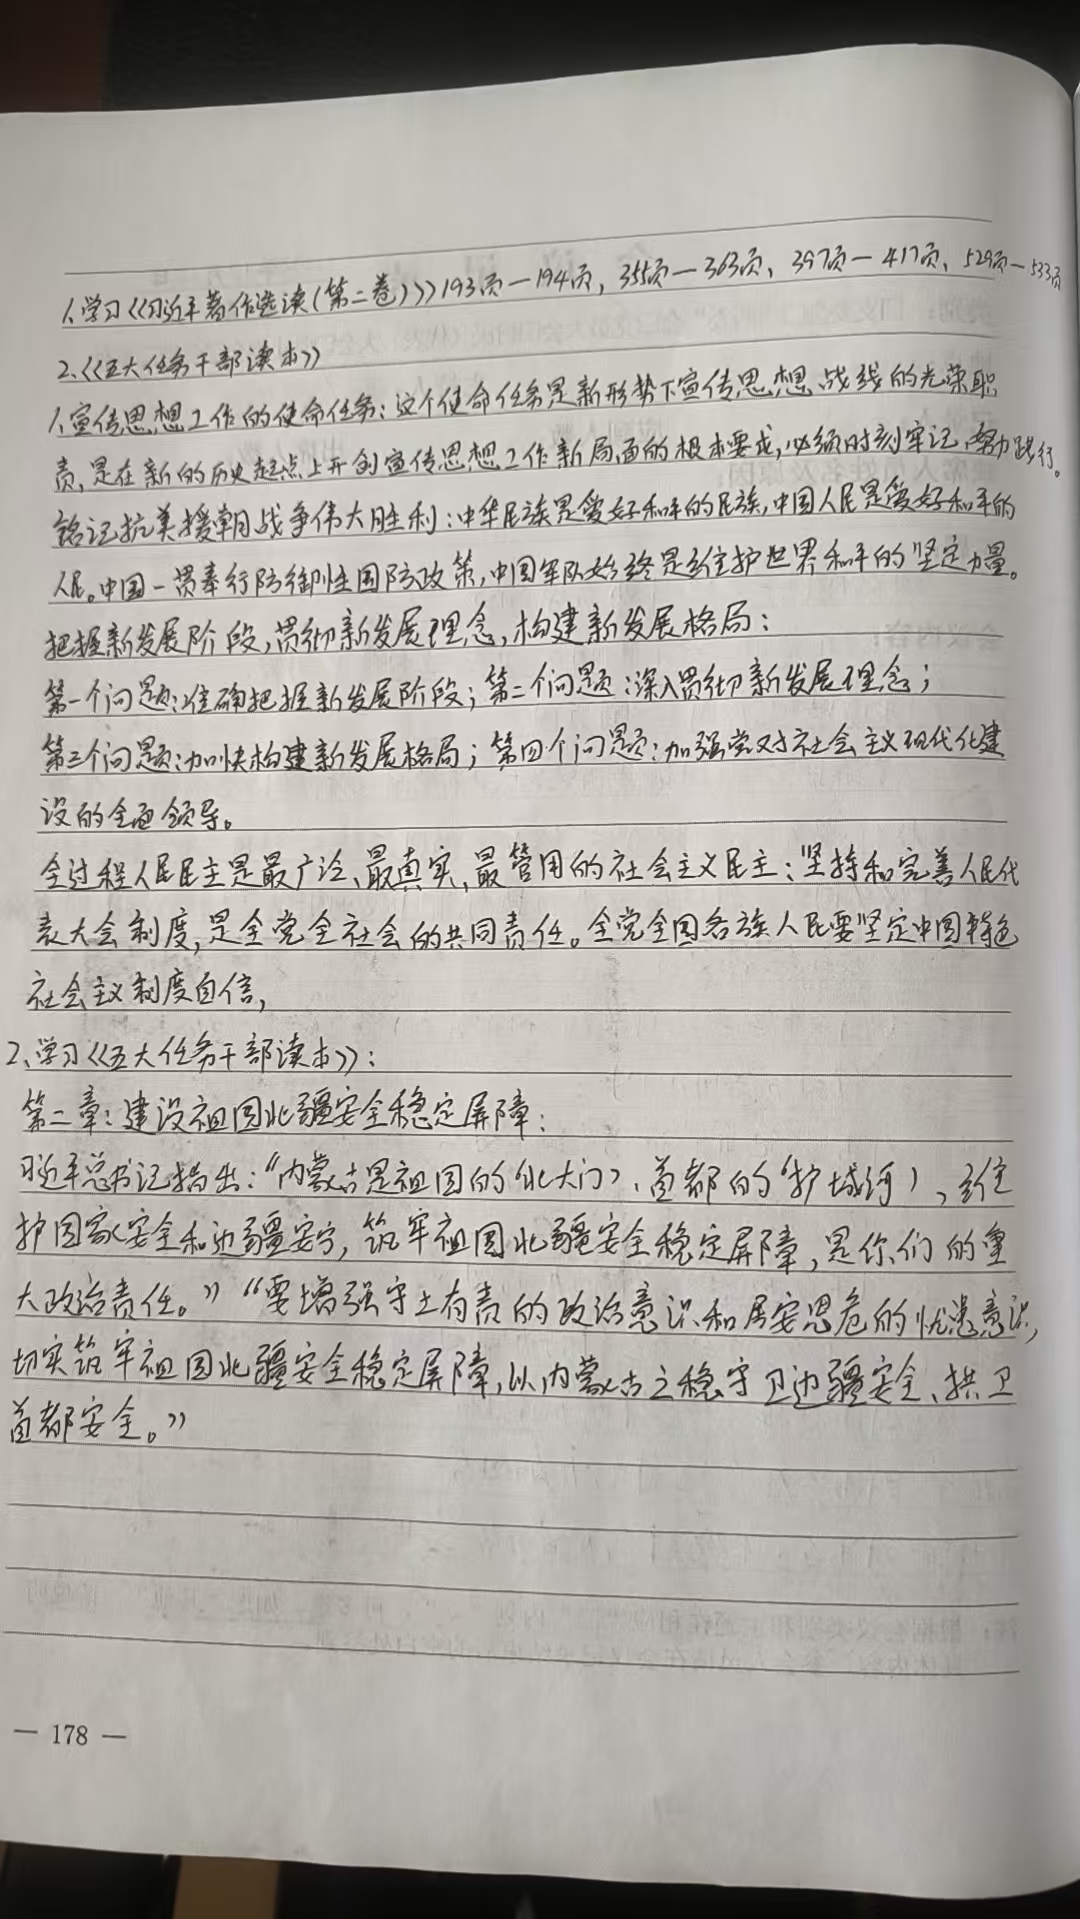 1、学习《习近平著作选读(第二卷)》193页—194页，355页—363页、397页—417页、529页—533页
2、《五大任务干部读本》
1、宣传思想工作的使命任务：这个使命任务是新形势下宣传思想战线的光荣职
责，是在新的历史起点上开创宣传思想工作新局面的根本要求，必须时刻牢记、努力践行。
铭记抗美援朝战争伟大胜利：中华民族是爱好和平的民族，中国人民是爱好和平的
人民。中国一贯奉行防御性国防政策，中国军队始终是维护世界和平的坚定力量。
把握新发展阶段，贯彻新发展理念，构建新发展格局：
第一个问题：准确把握新发展阶段；第二个问题：深入贯彻新发展理念；
第三个问题：加快构建新发展格局；第四个问题：加强党对社会主义现代化建
设的全面领导。
全过程人民民主是最广泛、最真实、最管用的社会主义民主：坚持和完善人民代
表大会制度，是全党全社会的共同责任。全党全国各族人民要坚定中国特色
社会主义制度自信，
2、学习《五大任务干部读本》：
第二章：建设祖国北疆安全稳定屏障：
习近平总书记指出：“内蒙古是祖国的‘北大门’、首都的‘护城河’，维
护国家安全和边疆安宁，筑牢祖国北疆安全稳定屏障，是你们的重
大政治责任。”“要增强守土有责的政治意识和居安思危的忧患意识，
切实筑牢祖国北疆安全稳定屏障，以内蒙古之稳守卫边疆安全、拱卫
首都安全。”
— 178 —